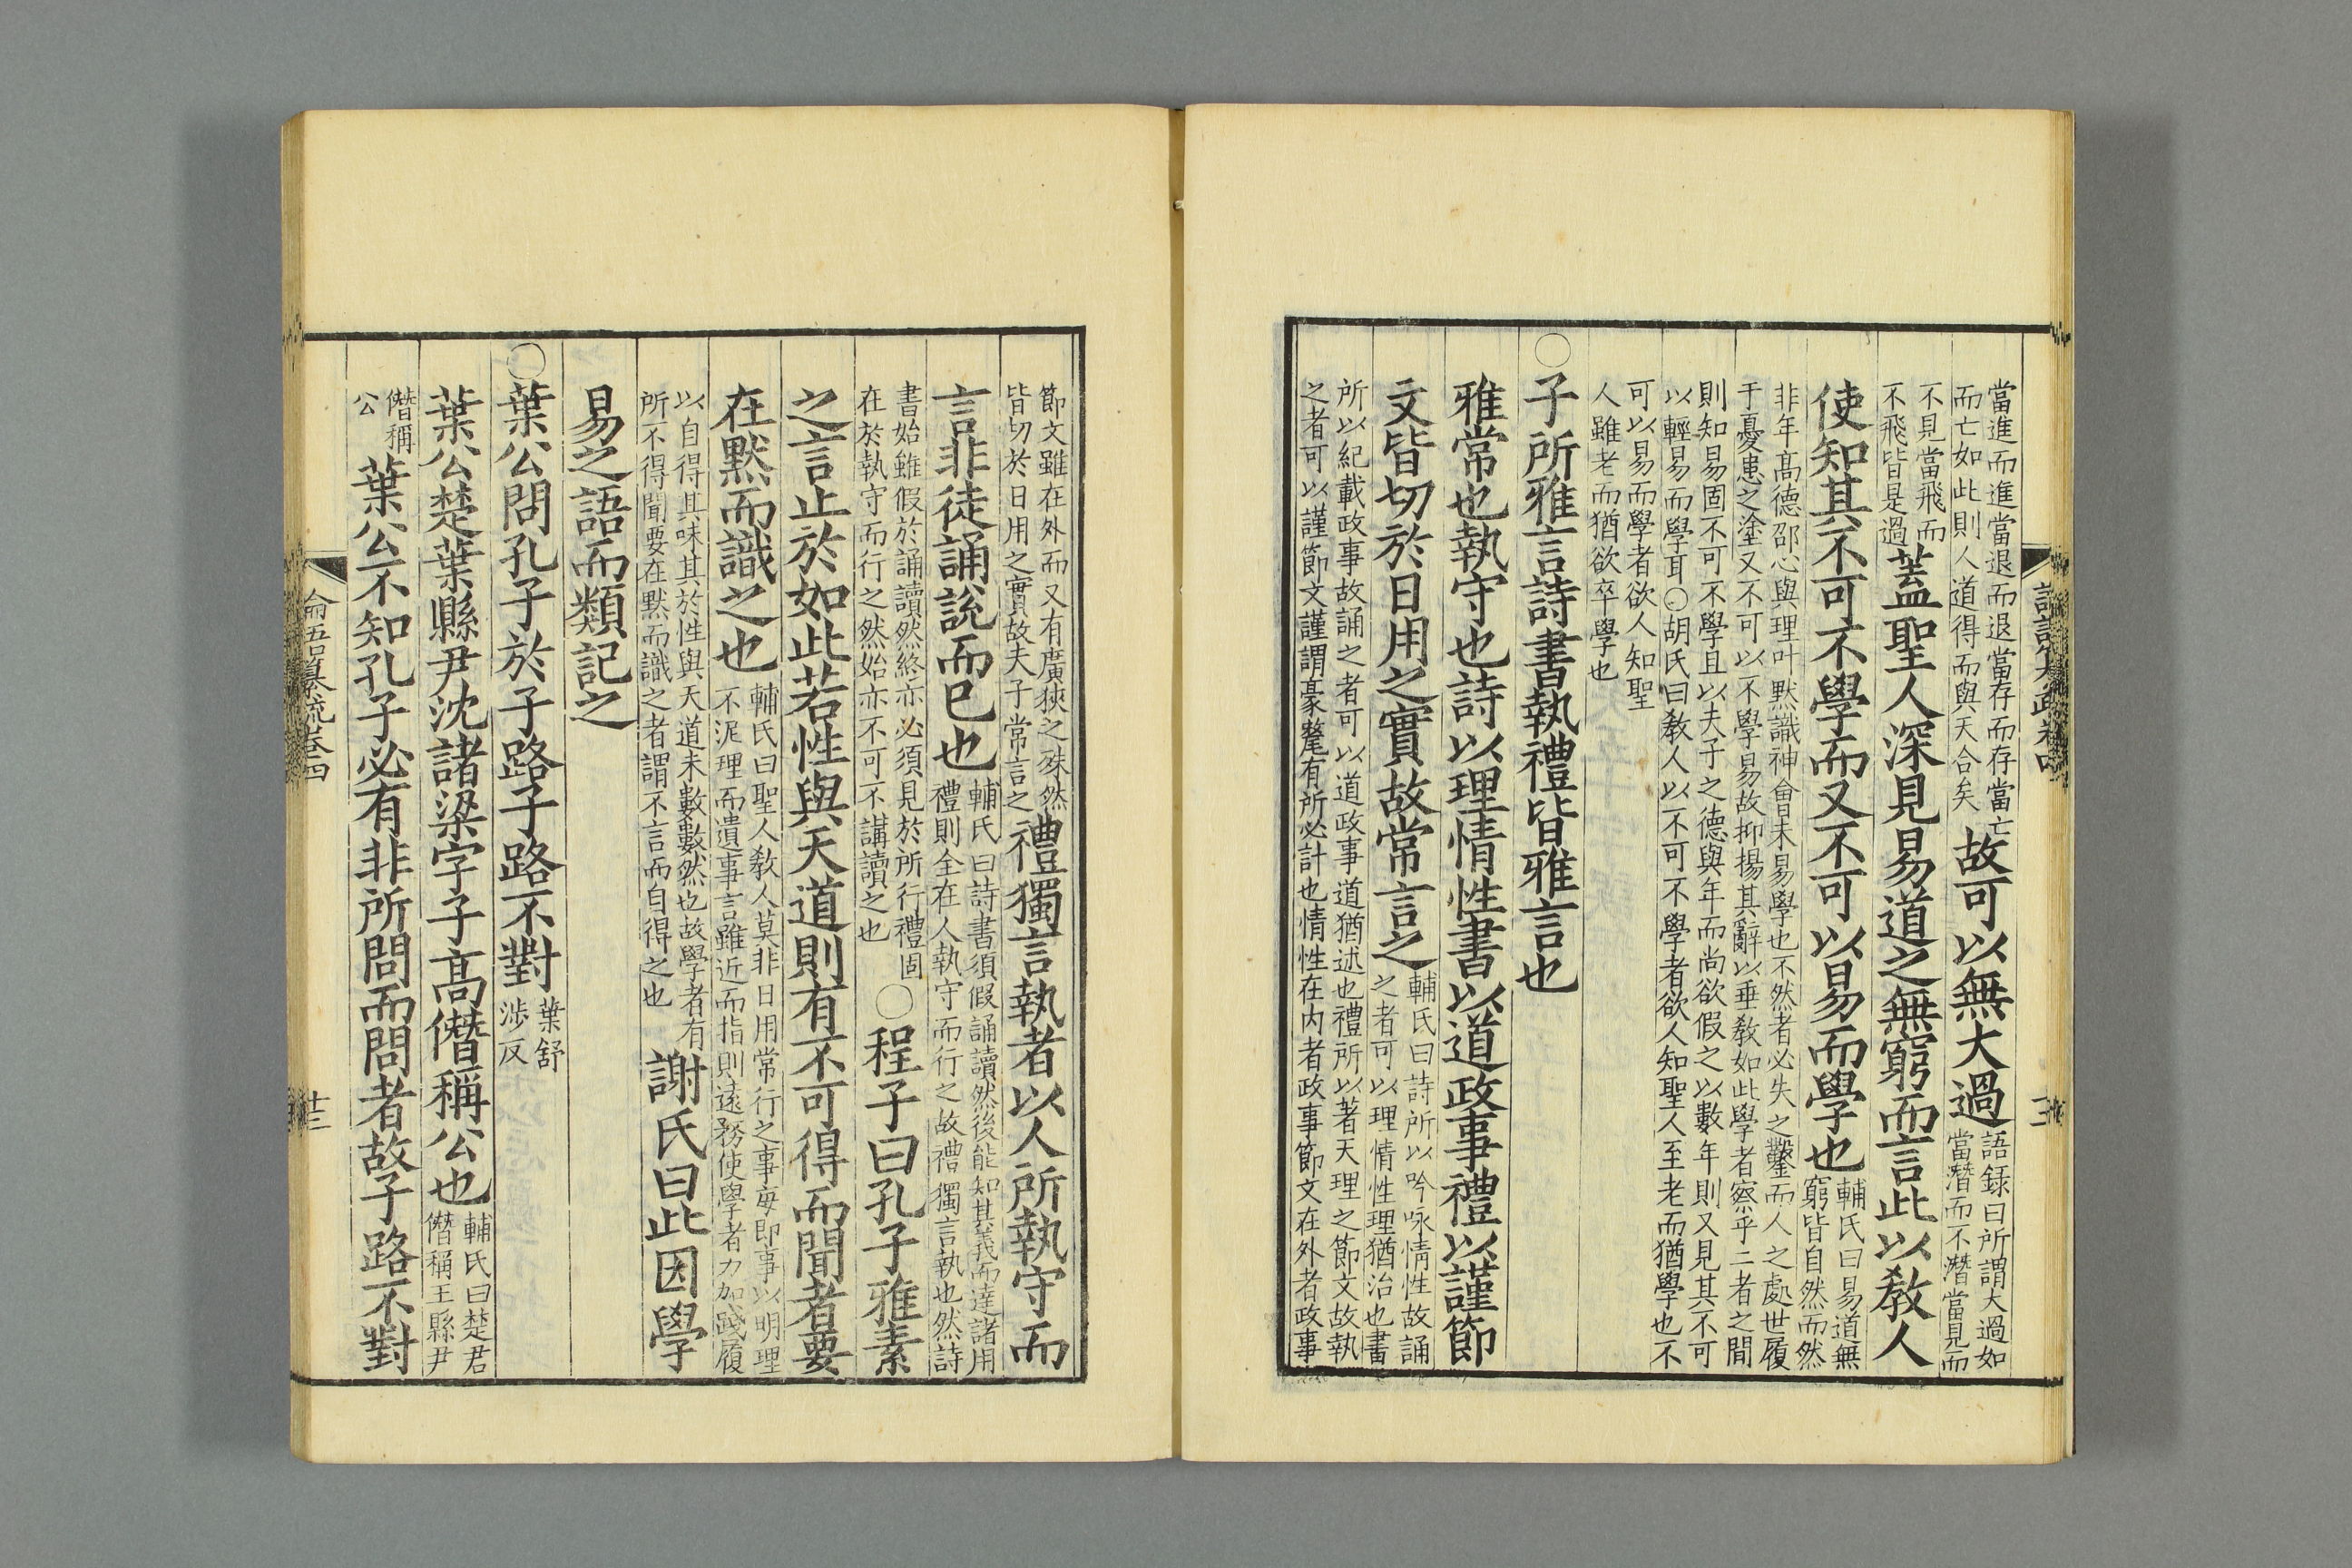 當進而進當退而退當存而存當亡
而亡如此則人道得而與天合矣
故可以無大過
語錄曰所謂大過如
當潛而不潛當見而
不見當飛而
不飛皆是過
蓋聖人深見易道之無窮而言此以教人
使知其不可不學而又不可以易而學也
輔氏曰易道無
窮皆自然而然
非年高德邵心與理叶默識神會未易學也不然者必失之鑿而人之處世履
于憂患之塗又不可以不學易故抑揚其辭以垂教如此學者察乎二者之間
則知易固不可不學且以夫子之德與年而尚欲假之以數年則又見其不可
以輕易而學耳○胡氏曰教人以不可不學者欲人知聖人至老而猶學也不
可以易而學者欲人知聖
人雖老而猶欲卒學也
○子所雅言詩書執禮皆雅言也
雅常也執守也詩以理情性書以道政事禮以謹節
文皆切於日用之實故常言之
輔氏曰詩所以吟咏情性故誦
之者可以理情性理猶治也書
所以紀載政事故誦之者可以道政事道猶述也禮所以著天理之節文故執
之者可以謹節文謹謂豪釐有所必計也情性在内者政事節文在外者政事
節文雖在外而又有廣狹之殊然
皆切於日用之實故夫子常言之
禮獨言執者以人所執守而
言非徒誦說而已也
輔氏曰詩書須假誦讀然後能知其義而達諸用
禮則全在人執守而行之故禮獨言執也然詩
書始雖假於誦讀然終亦必須見於所行禮固
在於執守而行之然始亦不可不講讀之也
○程子曰孔子雅素
之言止於如此若性與天道則有不可得而聞者要
在默而識之也
輔氏曰聖人教人莫非日用常行之事每即事以明理
不泥理而遺事言雖近而指則遠務使學者力加踐履
以自得其味其於性與天道未數數然也故學者有
所不得聞要在默而識之者謂不言而自得之也
謝氏曰此因學
易之語而類記之
○葉公問孔子於子路子路不對
葉舒
涉反
葉公楚葉縣尹沈諸梁字子高僭稱公也
輔氏曰楚君
僭稱王縣尹
僭稱
公
葉公不知孔子必有非所問而問者故子路不對
論語纂疏卷四
十三